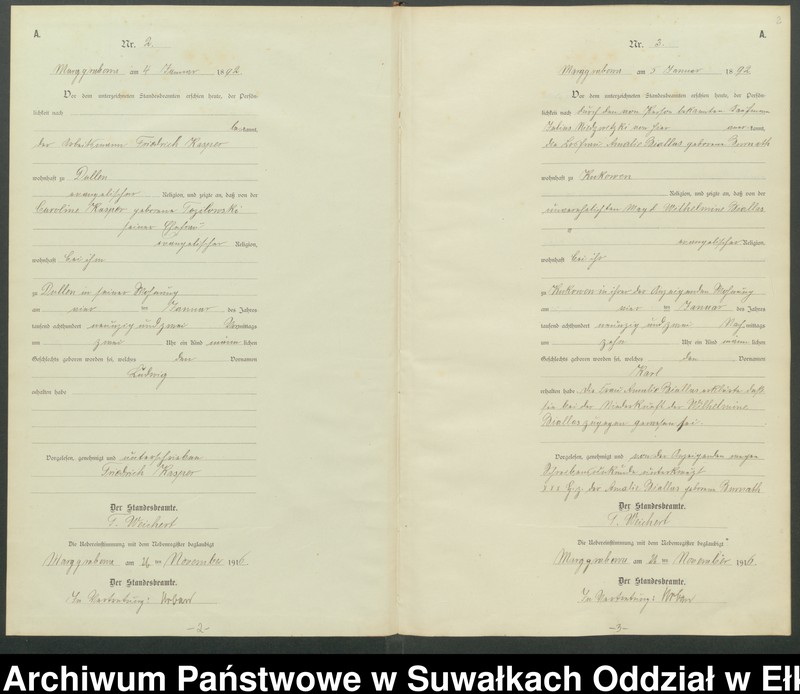 A.
Nr. 2.
Marggrabowa am 4 Januar 1892.
Vor dem unterzeichneten Standesbeamten erschien heute, der Persön-
lichkeit nach
bekannt,
der Arbeitsmann Friedrich Kasper
wohnhaft zu Dullen
evangelischer Religion, und zeigte an, daß von der
Caroline Kasper geborene
seiner Ehefrau
evangelischer Religion,
wohnhaft bei ihm
zu Dullen in seiner Wohnung
am vier ten Januar des Jahres
tausend achthundert neunzig und zwei Vormittags
um zwei Uhr ein Kind männlichen
Geschlechts geboren worden sei, welches den Vornamen
Ludwig
erhalten habe
Vorgelesen, genehmigt und unterschrieben
Friedrich Kasper
Der Standesbeamte.
T. Weichert
Die Uebereinstimmung mit dem Nebenregister beglaubigt
Marggrabowa am ten November 1916.
Der Standesbeamte.
In Vertretung: Urban
-2-
A.
Nr. 3.
Marggrabowa am 5 Januar 1892
Vor dem unterzeichneten Standesbeamten erschien heute, der Persön-
lichkeit nach durch den von Person bekannten Kaufmann
Julius von hier kannt,
die Losfrau Amalie Biallas geborene Burnath
wohnhaft zu Kukowen
Religion, und zeigte an, daß von der
unverehelichten Magd Wilhelmine Biallas
evangelischer Religion,
wohnhaft bei ihr
zu Kukowen in ihrer der Anzeigenden Wohnung
am vier ten Januar des Jahres
tausend achthundert neunzig und zwei Nachmittags
um zehn Uhr ein Kind männlichen
Geschlechts geboren worden sei, welches den Vornamen
Karl
erhalten habe. Die Frau Amalie Biallas erklärte, daß
sie bei der Niederkunft der Wilhelmine
Biallas zugegen gewesen sei.
Vorgelesen, genehmigt und von der Anzeigenden wegen
Schreibensunkunde unterkreuzt
xxx Hz. der Amalie Biallas geborene Burnath
Der Standesbeamte.
T. Weichert
Die Uebereinstimmung mit dem Nebenregister beglaubigt
Marggrabowa am ten November 1916.
Der Standesbeamte.
In Vertretung: Urban
-3-
Archiwum Państwowe w Suwałkach Oddział w Ełk